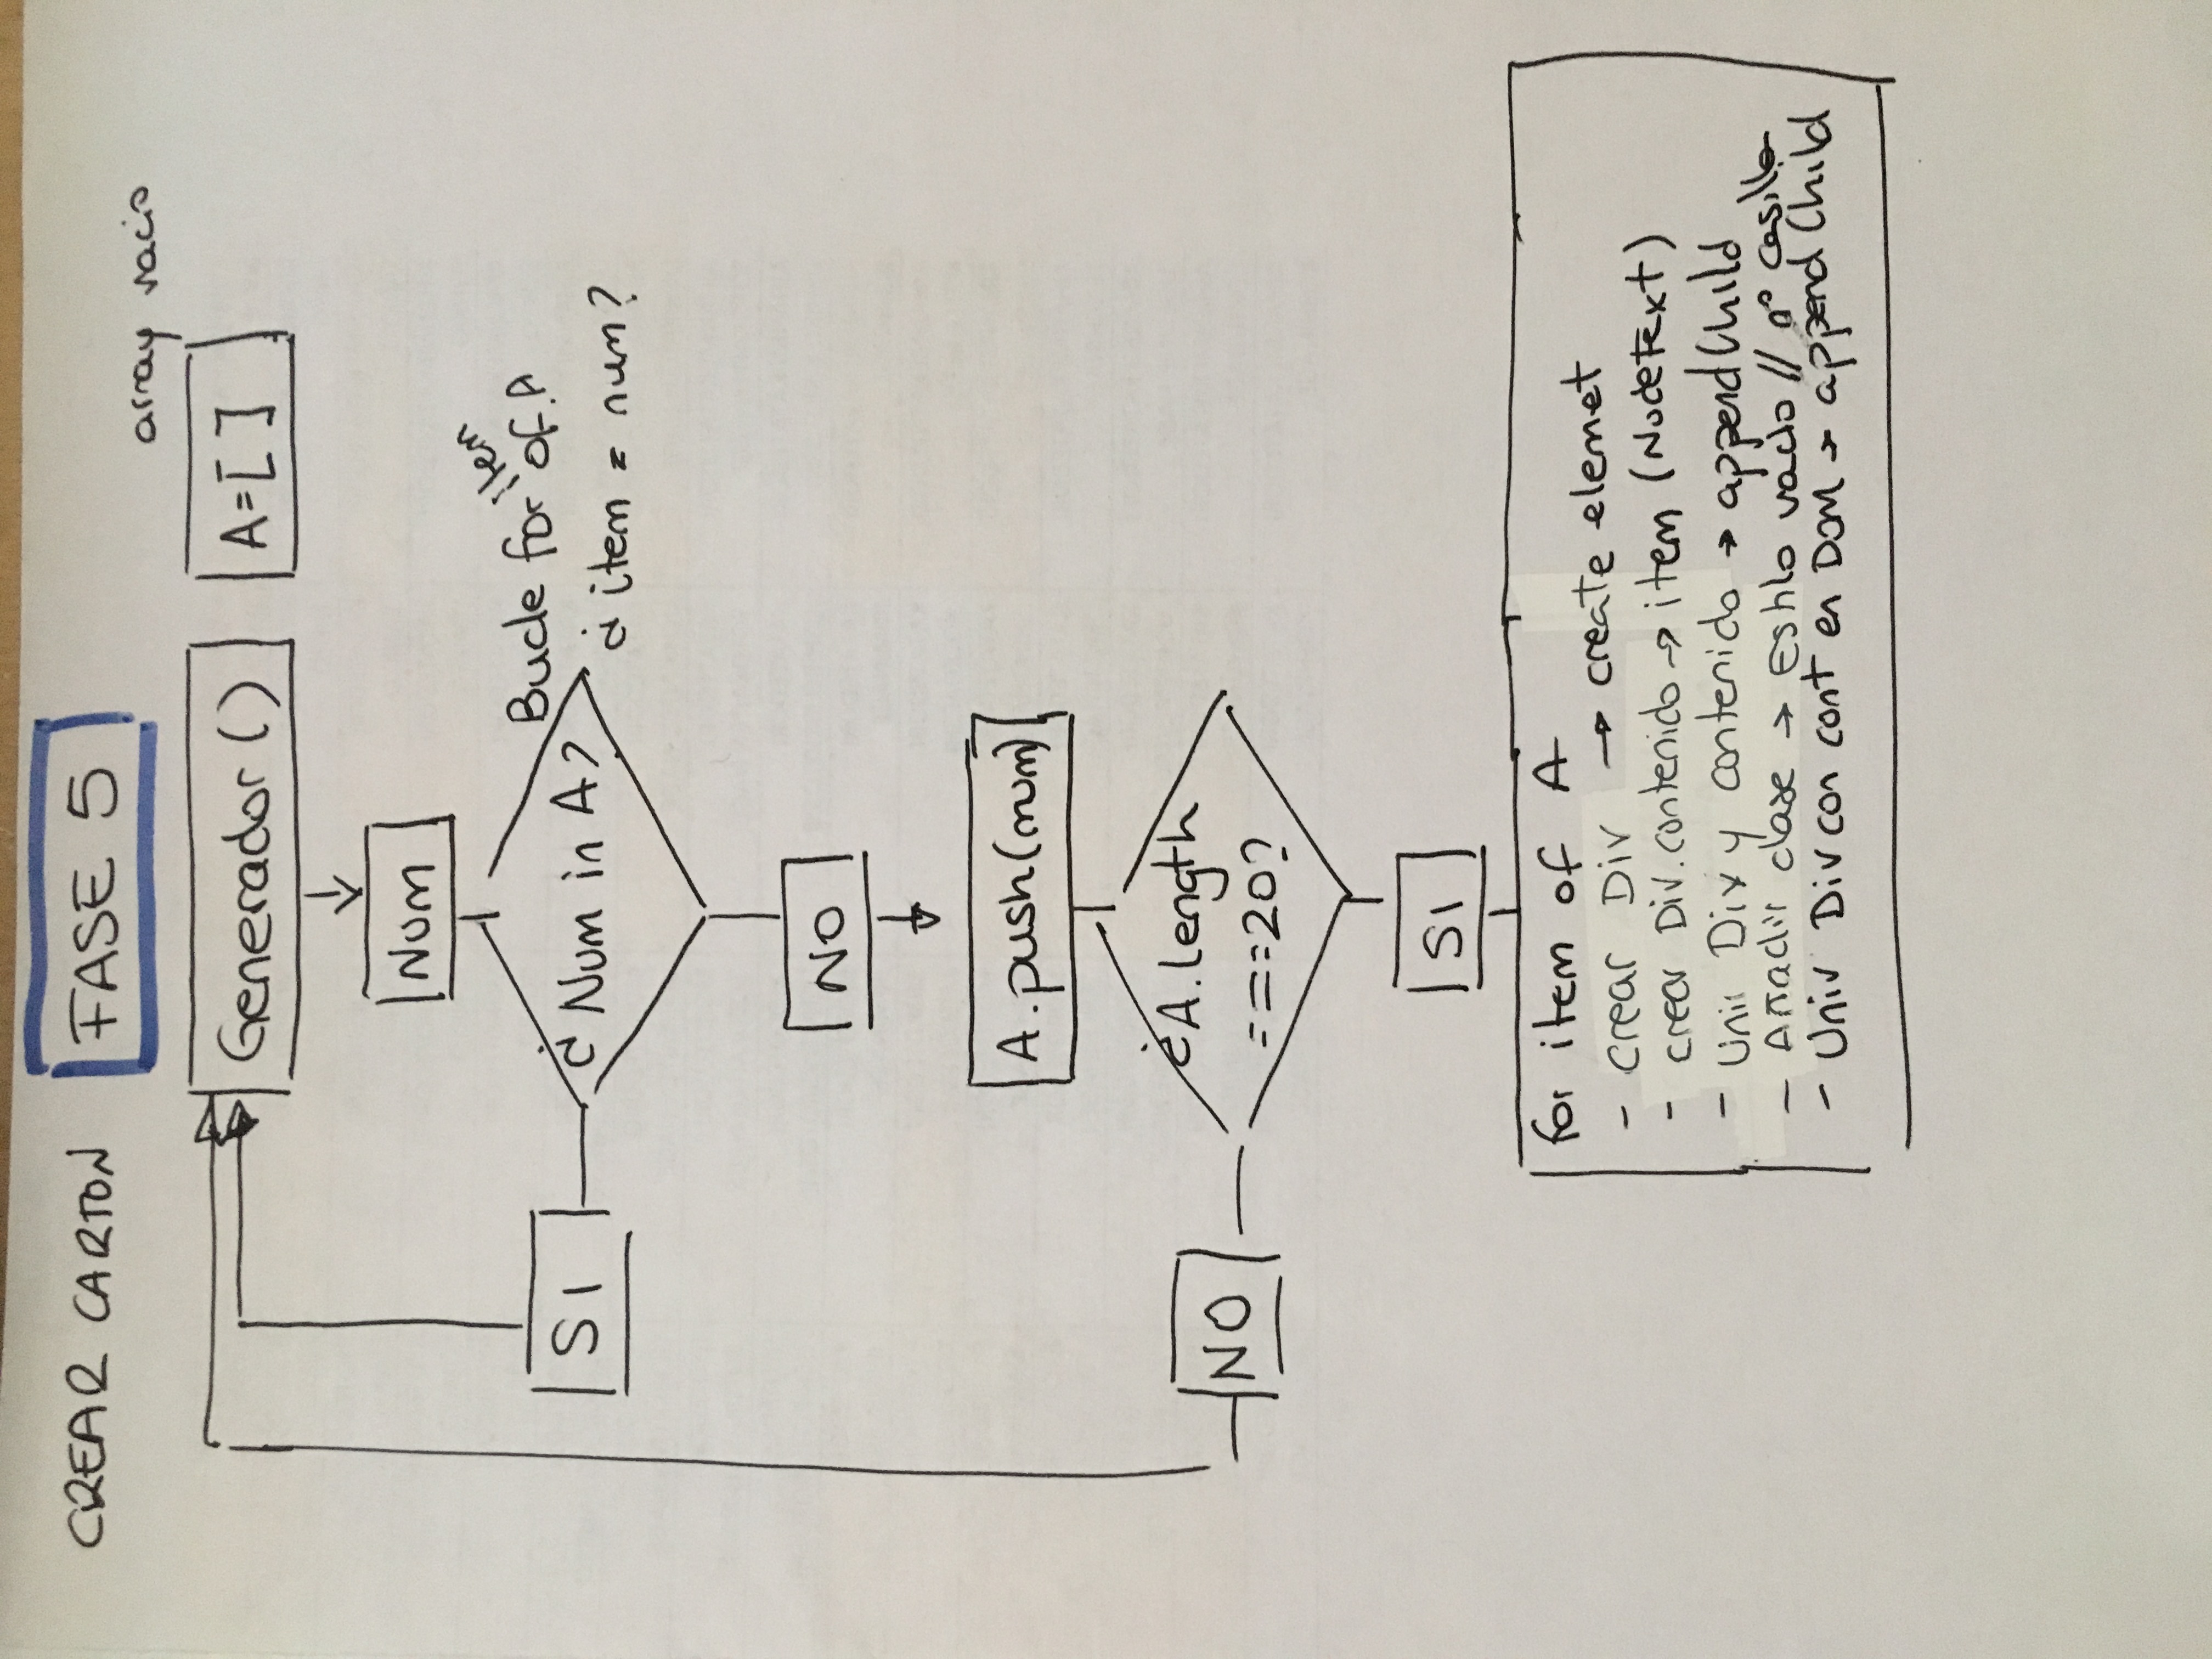 CREAR CARTON FASE 5
array vacio
Generador ()
A=[ ]
Num
Bucle for item of A
¿ item = num?
¿ Num in A?
SI
NO
A.push(num)
¿A.length
===20?
NO
SI
for item of A
- crear Div → create elemet
- crear Div.contenido → item (NodeText)
- Unir Div y contenido → appendChild
- Añadir clase → Estilo vacio // nº casilla
- Unir Div con cont en DOM → appendChild